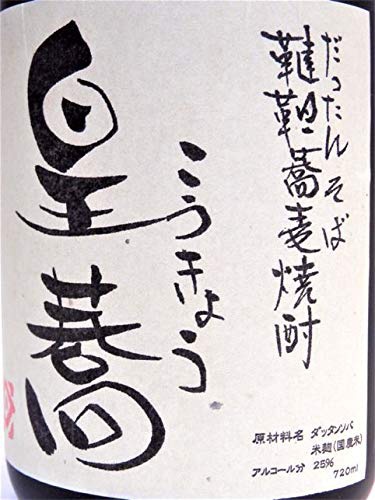 だったんそば
韃靼蕎麦焼酎
こうきょう
皇蕎
原材料名 ダッタンソバ
米麹(国産米)
アルコール分 25%
720ml